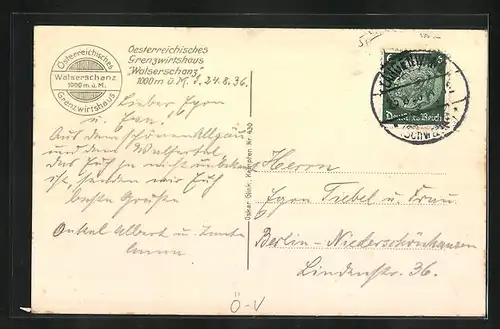 Österreichisches
Walserschanz
1000 m. ü. M.
Grenzwirtshaus
Oesterreichisches
Grenzwirtshaus
"Walserschanz"
1000m ü.M.
24.8.36.
Lieber Egon
u. Frau!
Aus dem schönen Allgäu
und dem Walsertal,
das Euch ja nicht unbekannt
ist, senden wir Euch
beste Grüße
Onkel Albert u. Tante
Anna
Oskar Glöck, Kempten Nr. 430
6
Deutsches Reich
Herrn
Egon Tiebel u. Frau.
Berlin-Niederschönhausen
Lindenstr. 36.
Ö-V